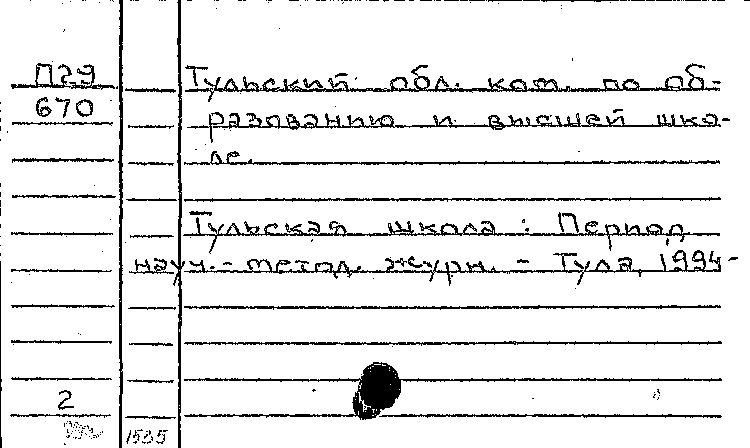 П29 Тульский обл. ком. по об-
670 разованию и высшей шко-
ле.
Тульская школа : Период
науч.- метод. журн. - Тула, 1994-
2